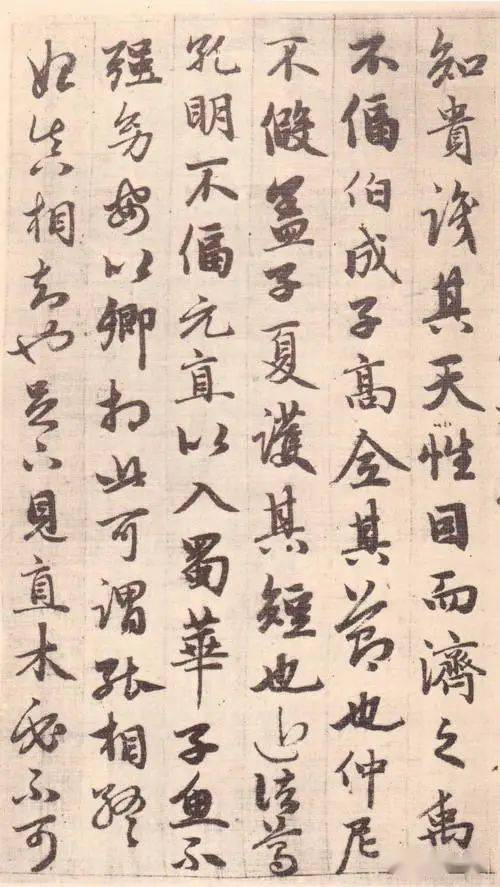 知貴識其天性因而濟之禹
不偪伯成子高全其節也仲尼
不假蓋子夏護其短也近諸葛
孔明不偪元直以入蜀華子魚不
強幼安以卿相此可謂能相終
始真相知也足下見直木必不可